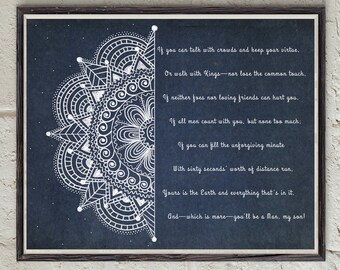 If you can talk with crowds and keep your virtue,
Or walk with Kings—nor lose the common touch,
If neither foes nor loving friends can hurt you,
If all men count with you, but none too much;
If you can fill the unforgiving minute
With sixty seconds' worth of distance run,
Yours is the Earth and everything that's in it,
And—which is more—you'll be a Man, my son!